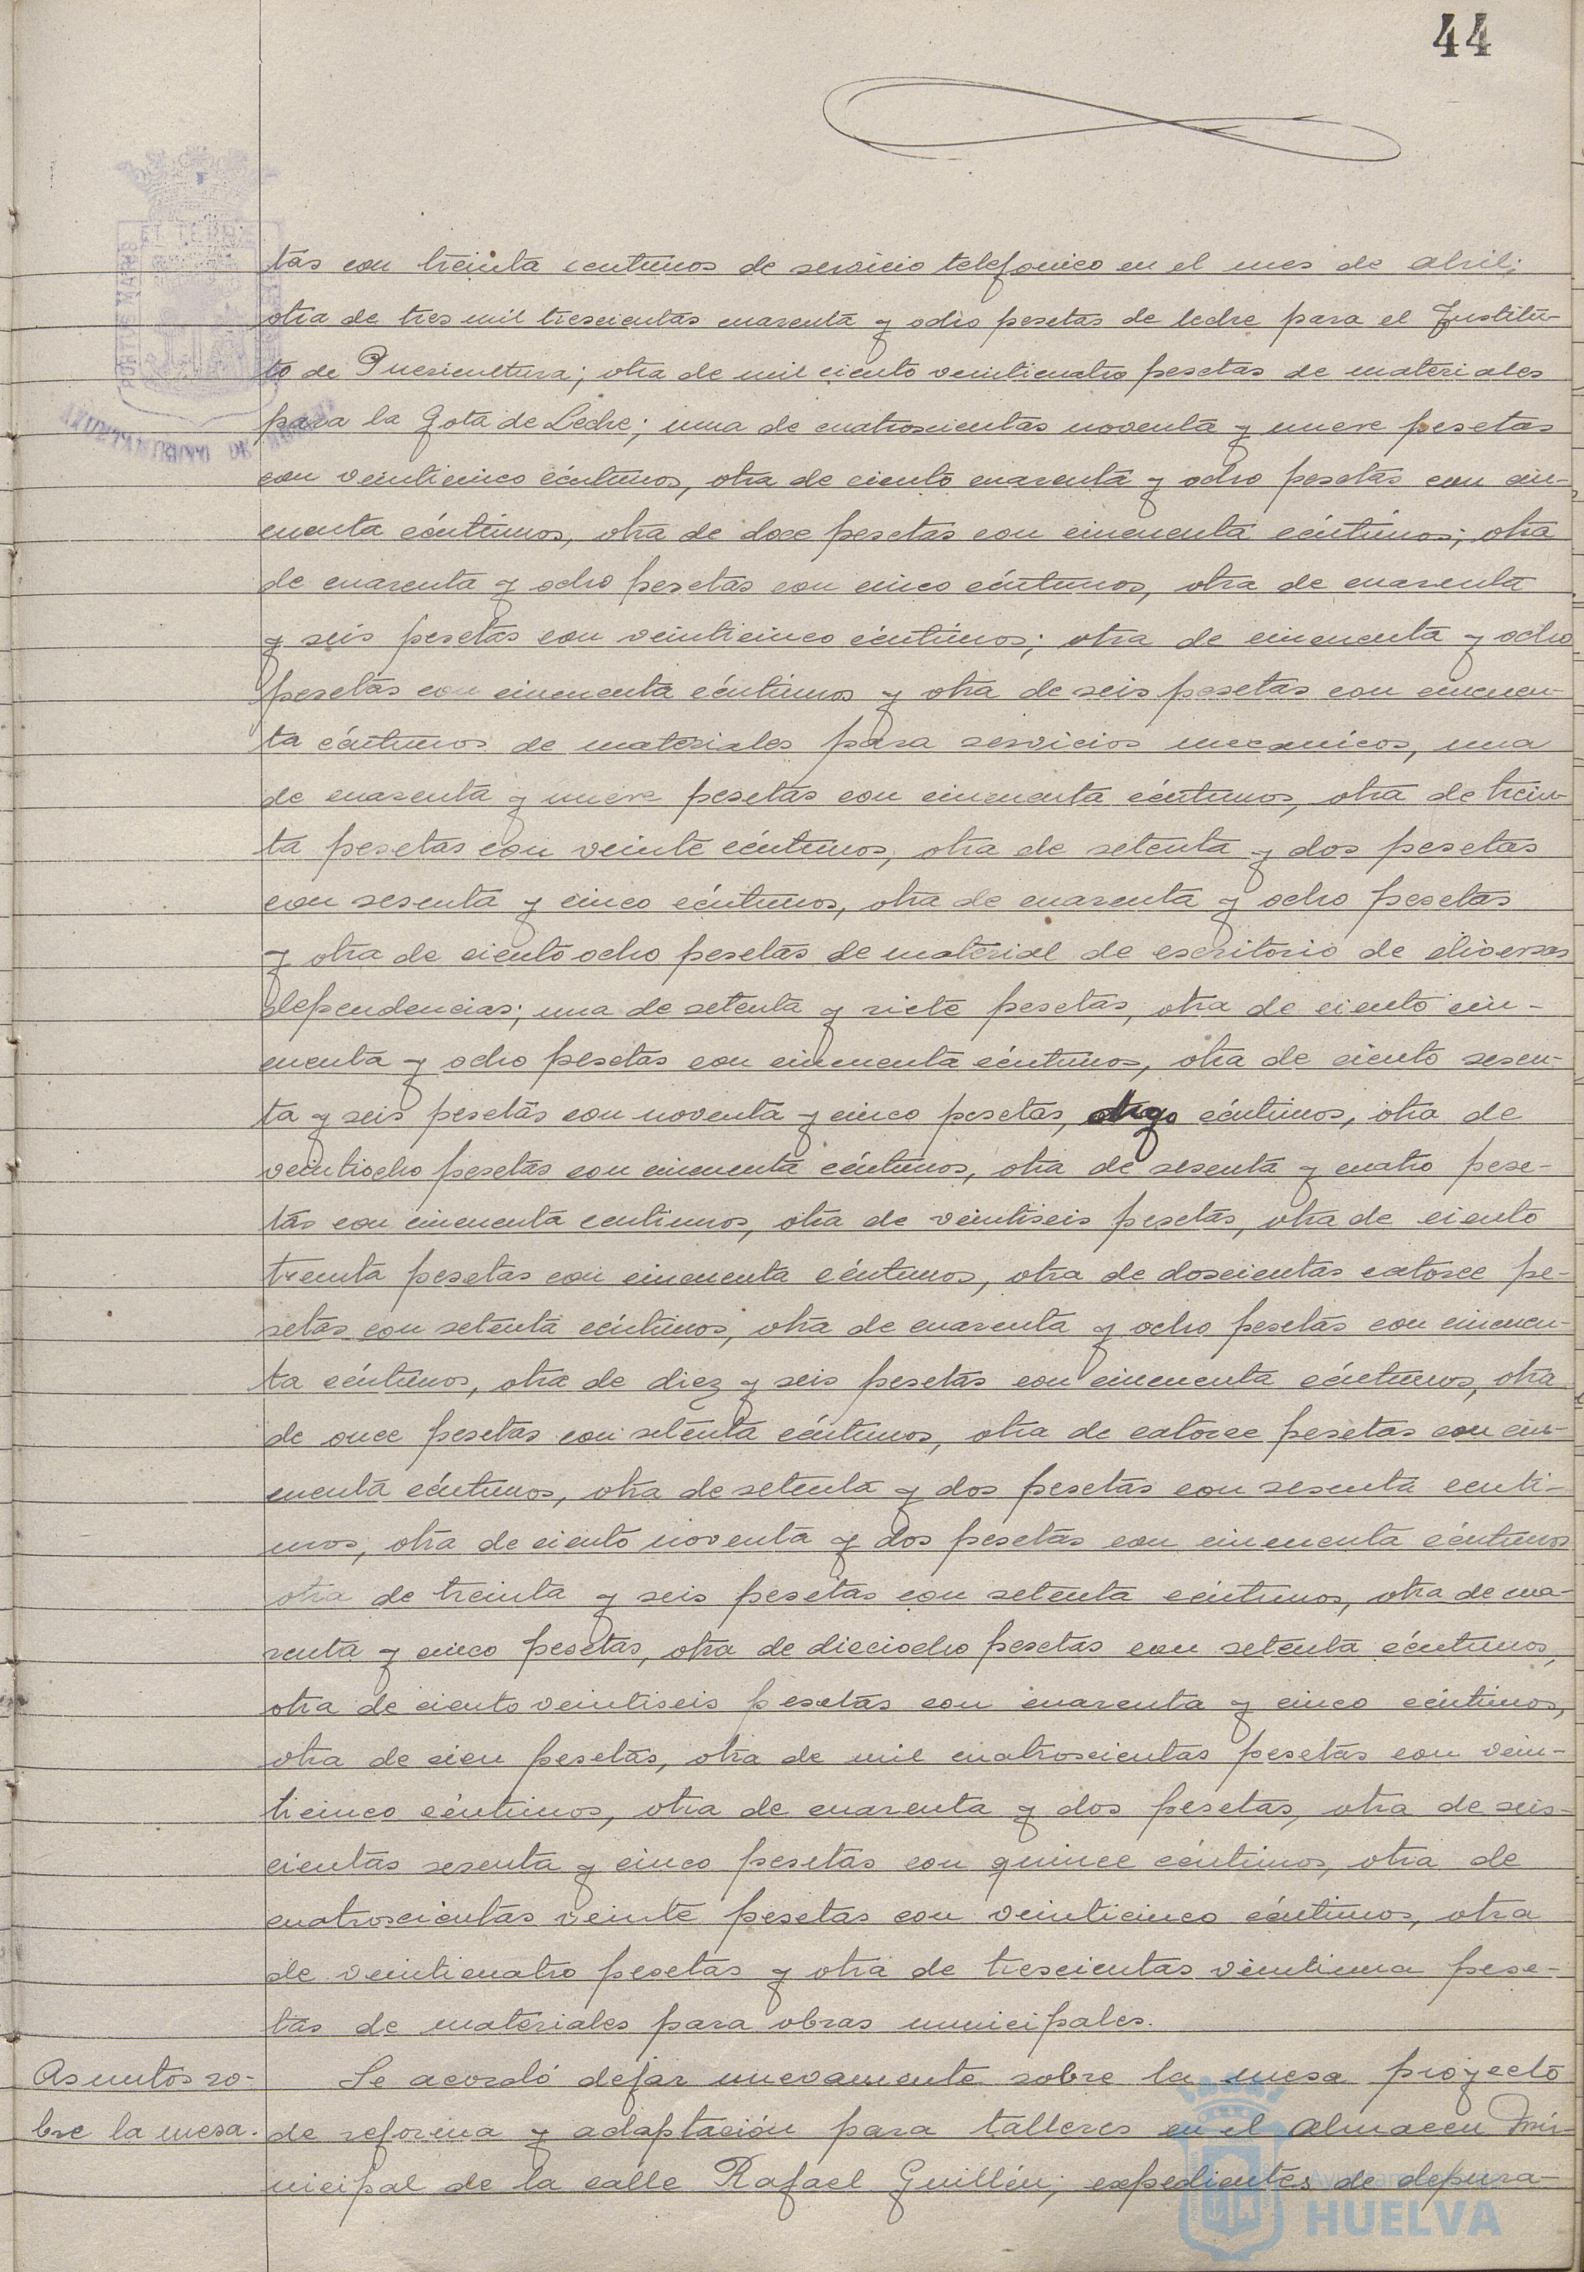 44
tas con treinta centimos de servicio telefonico en el mes de abril;
otra de tres mil trescientas cuarenta y ocho pesetas de leche para el Institu-
to de Puericultura; otra de mil ciento veinticuatro pesetas de materiales
para la Gota de Leche; una de cuatrocientas noventa y nueve pesetas
con veinticinco céntimos, otra de ciento cuarenta y ocho pesetas con cin-
cuenta céntimos, otra de doce pesetas con cincuenta céntimos; otra
de cuarenta y ocho pesetas con cinco céntimos, otra de cuarenta
y seis pesetas con veinticinco céntimos; otra de cincuenta y ocho
pesetas con cincuenta céntimos y otra de seis pesetas con cincuen-
ta céntimos de materiales para servicios mecanicos, una
de cuarenta y nueve pesetas con cincuenta céntimos, otra de trein-
ta pesetas con veinte céntimos, otra de setenta y dos pesetas
con sesenta y cinco céntimos, otra de cuarenta y ocho pesetas
y otra de ciento ocho pesetas de material de escritorio de diversas
dependencias; una de setenta y siete pesetas, otra de ciento cin-
cuenta y ocho pesetas con cincuenta céntimos, otra de ciento sesen-
ta y seis pesetas con noventa y cinco pesetas, digo céntimos, otra de
veintiocho pesetas con cincuenta céntimos, otra de sesenta y cuatro pese-
tas con cincuenta centimos, otra de veintiseis pesetas, otra de ciento
treinta pesetas con cincuenta céntimos, otra de doscientas catorce pe-
setas con setenta céntimos, otra de cuarenta y ocho pesetas con cincuen-
ta céntimos, otra de diez y seis pesetas con cincuenta céntimos, otra
de once pesetas con setenta céntimos, otra de catorce pesetas con cin-
cuenta céntimos, otra de setenta y dos pesetas con sesenta centi-
mos, otra de ciento noventa y dos pesetas con cincuenta céntimos
otra de treinta y seis pesetas con setenta céntimos, otra de cua-
renta y cinco pesetas, otra de dieciocho pesetas con setenta céntimos,
otra de ciento veintiseis pesetas con cuarenta y cinco céntimos,
otra de cien pesetas, otra de mil cuatrocientas pesetas con vein-
ticinco céntimos, otra de cuarenta y dos pesetas, otra de seis-
cientas sesenta y cinco pesetas con quince céntimos, otra de
cuatroscientas veinte pesetas con veinticinco céntimos, otra
de veinticuatro pesetas y otra de trescientas veintiuna pese-
tas de materiales para obras municipales.
Asuntos so-
bre la mesa.
Se acordó dejar nuevamente sobre la mesa proyecto
de reforma y adaptación para talleres en el Almacen Mu-
nicipal de la calle Rafael Guillén; expedientes de depura-
HUELVA